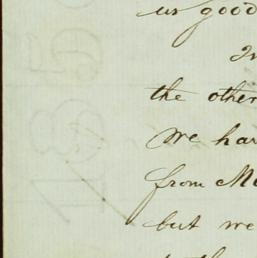 us good
In
the other
We hav
from Mo
but we